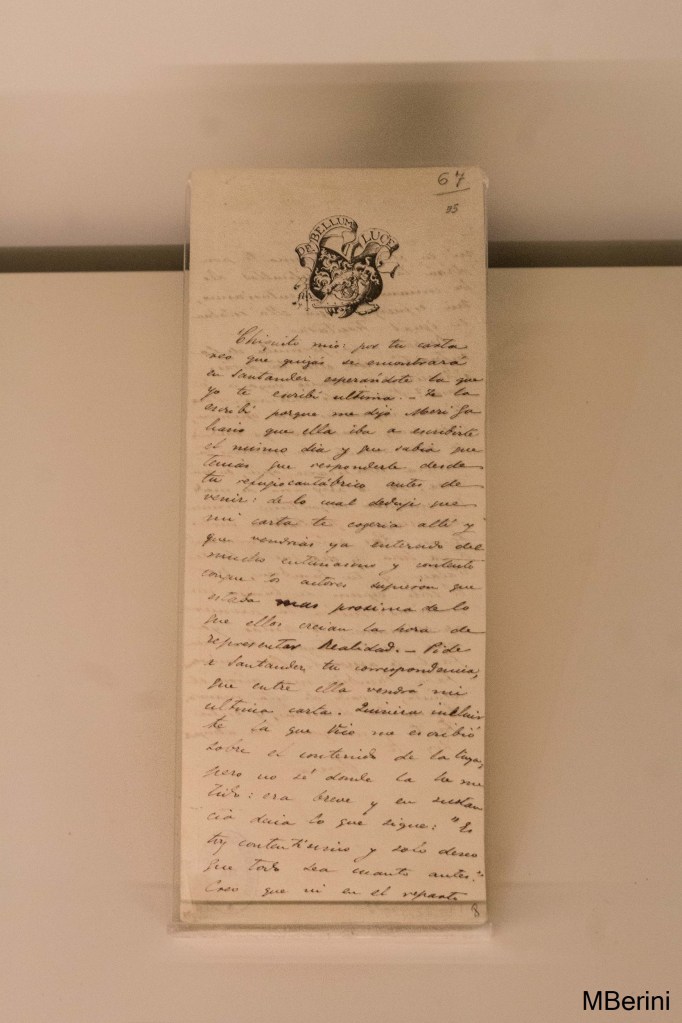 67
DE BELLUM LUCE
Chiquito mio: por tu carta
veo que quizás se encontrará
en Santander esperándote la que
yo te escribí ultima. - Te la
escribí porque me dijo
que ella iba a escribirte
el mismo dia y que sabía que
tenías que responderle desde
tu refugio cantábrico antes de
venir: de lo cual deduje que
mi carta te cogeria allí y
que vendrias ya enterado del
mucho entusiasmo y contento
conque los actores supieron que
estaba mas proxima de lo
que ellos creian la hora de
representar Realidad. - Pide
a Santander tu correspondencia,
que entre ella vendrá mi
ultima carta. Quisiera incluir
te la que Vico me escribió
sobre el contenido de la tuya,
pero no sé donde la he me
tido: era breve y en sustan
cia decia lo que sigue: "Es
toy contentísimo y solo deseo
que todo sea cuanto antes."
Creo que ni en el reparto
8
MBerini